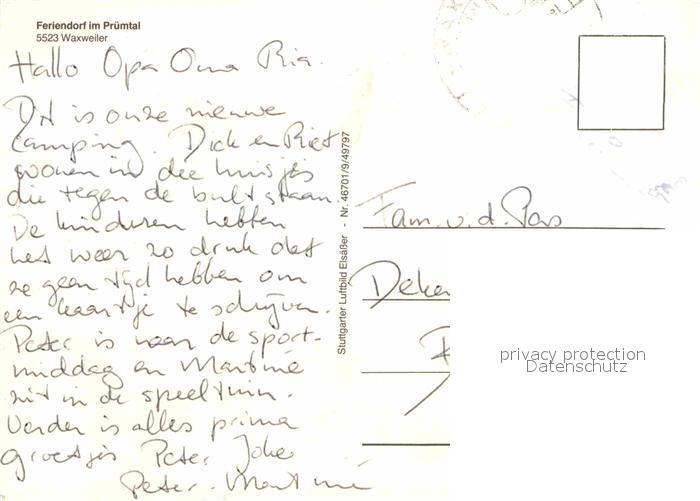 Feriendorf im Prümtal
5523 Waxweiler
Hallo Opa Oma Ria.
Dit is onze nieuwe
camping. Dick en Riet
wonen in die huisjes
die tegen de bult staan.
De kinderen hebben
het weer zo druk dat
ze geen tijd hebben om
een kaartje te schrijven.
Peter is naar de sport-
middag en Martiné
zit in de speeltuin.
Verder is alles prima
groetjes Peter Joke
Peter. Martiné
Stuttgarter Luftbild Elsäßer - Nr. 46701/9/49797
Fam. v.d. Pas
Deke
privacy protection
Datenschutz